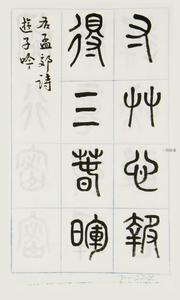 寸艸心報
得三春暉
右孟郊詩
遊子吟